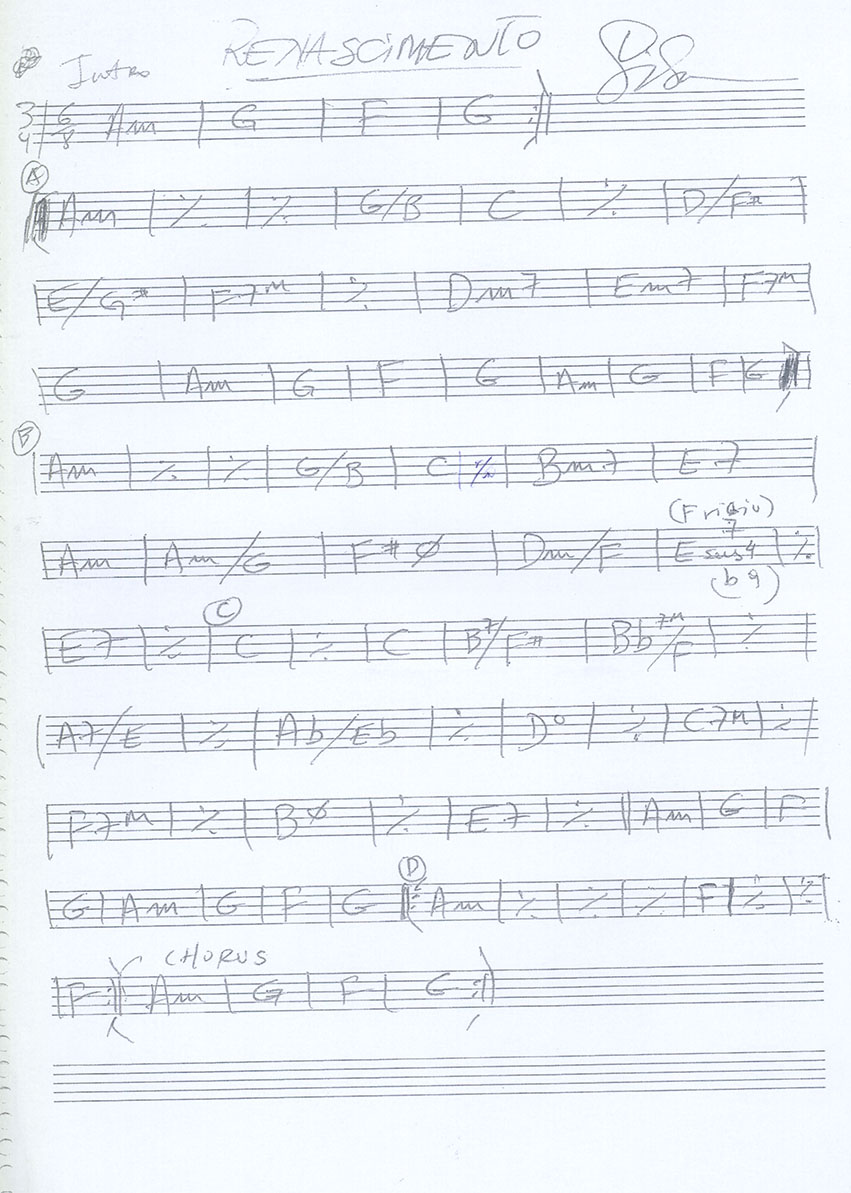 RENASCIMENTO
Intro
3/4 6/8 Am | G | F | G :||
A
Am | ٪ | ٪ | G/B | C | ٪ | D/F# |
E/G# | F7M | ٪ | Dm7 | Em7 | F7M |
G | Am | G | F | G | Am | G | F | G |
B
Am | ٪ | ٪ | G/B | C | ٪ | Bm7 | E7 |
(Frigio)
Am | Am/G | F#ø | Dm/F | E7sus4 | ٪ |
(b9)
C
E7 | ٪ | C | ٪ | C | B7/F# | Bb7M/F | ٪ |
A7/E | ٪ | Ab/Eb | ٪ | D° | ٪ | C7M | ٪ |
F7M | ٪ | Bø | ٪ | E7 | ٪ || Am | G | F |
D
G | Am | G | F | G ||: Am | ٪ | ٪ | ٪ | F | ٪ | ٪ |
CHORUS
F :|| Am | G | F | G :||